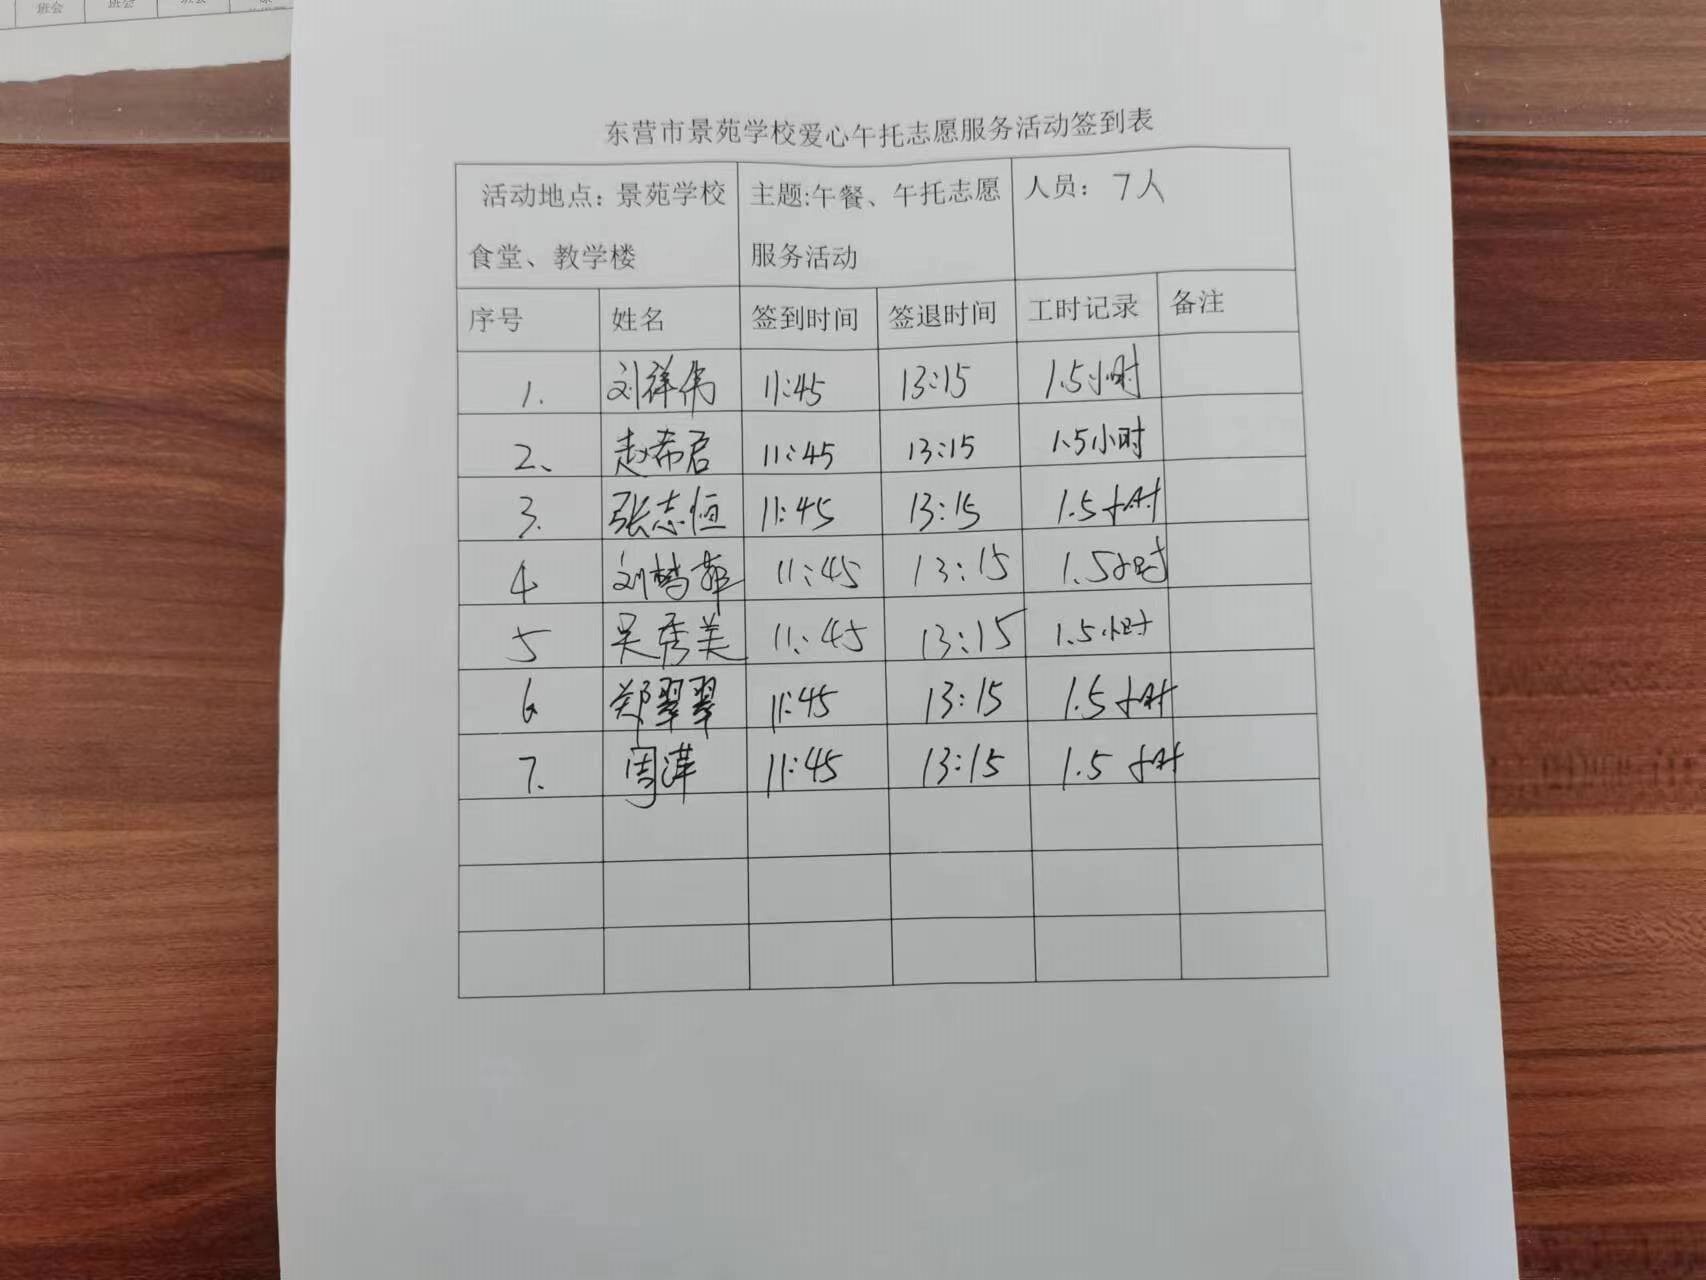 班会 班会 班会
东营市景苑学校爱心午托志愿服务活动签到表
活动地点：景苑学校 主题:午餐、午托志愿 人员：7人
食堂、教学楼 服务活动
序号 姓名 签到时间 签退时间 工时记录 备注
1. 刘祥伟 11:45 13:15 1.5小时
2、 赵希君 11:45 13:15 1.5小时
3. 张志恒 11:45 13:15 1.5小时
4 刘梦菲 11:45 13:15 1.5小时
5 吴秀美 11:45 13:15 1.5小时
6 郑翠翠 11:45 13:15 1.5小时
7. 周萍 11:45 13:15 1.5小时